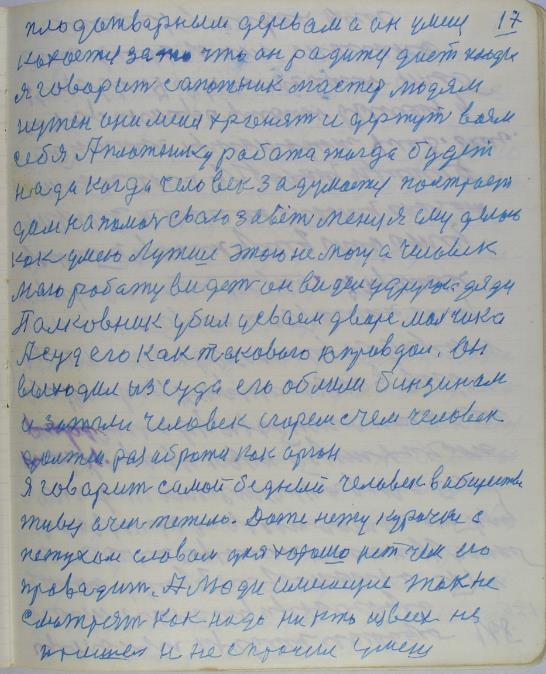 17
плодотварным дервам а он умец
кахаетец за то что он радитец дает люди
я говарит сапожник мастер людям
нужен они меня хронят и держут возле
себя А плотнику работа тогда будет
нада когда человек задумаетец построет
дам на помоч сваю завет меня я ему делою
как умею Лутшие этого не могу а человек
маю работу видет он видел у других дяди
Палковник убил у сваем дваре малчика
А суд его как такового вправдал. Он
выходил из суда его облили бинзинам
и зажгли человек сгорел с чем человек
должен раз аброта как агон
я говарит самой бедний человек в абществе
живу очен тежело. Даже нету курочки с
петухом словам дня хорошо нет чем его
провадит. А люди имеющие так не
смотрят как нада никто и всех не
пришел и не спросил у меня